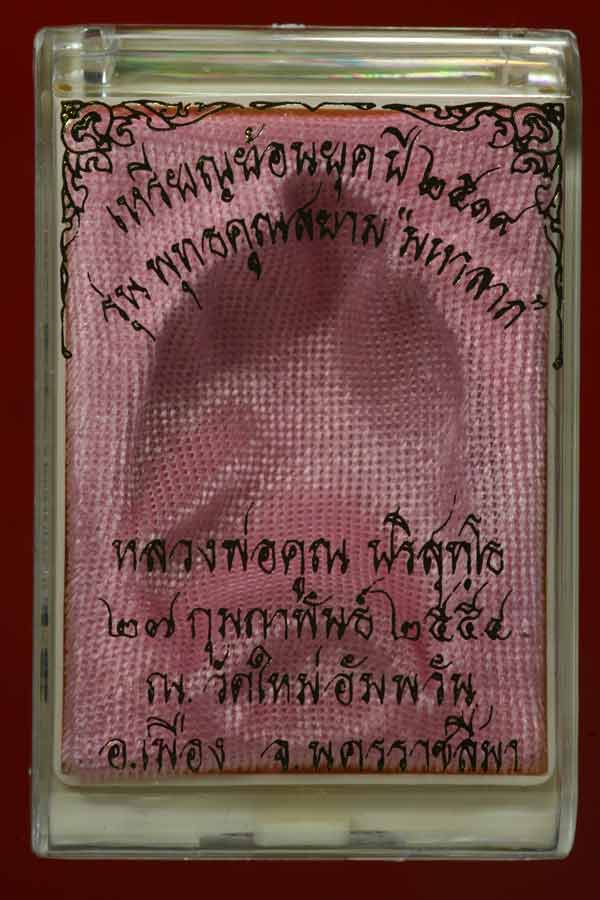 เหรียญย้อนยุค ปี ๒๕๑๘
รุ่น พุทธคุณสยาม "มหาลาภ"
หลวงพ่อคูณ ปริสุทฺโธ
๒๗ กุมภาพันธ์ ๒๕๕๔
ณ. วัดใหม่อัมพวัน
อ.เมือง จ.นครราชสีมา